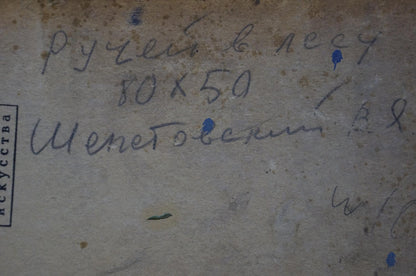 ручей в лесу
80 х 50
Шепетовский В Я
искусства